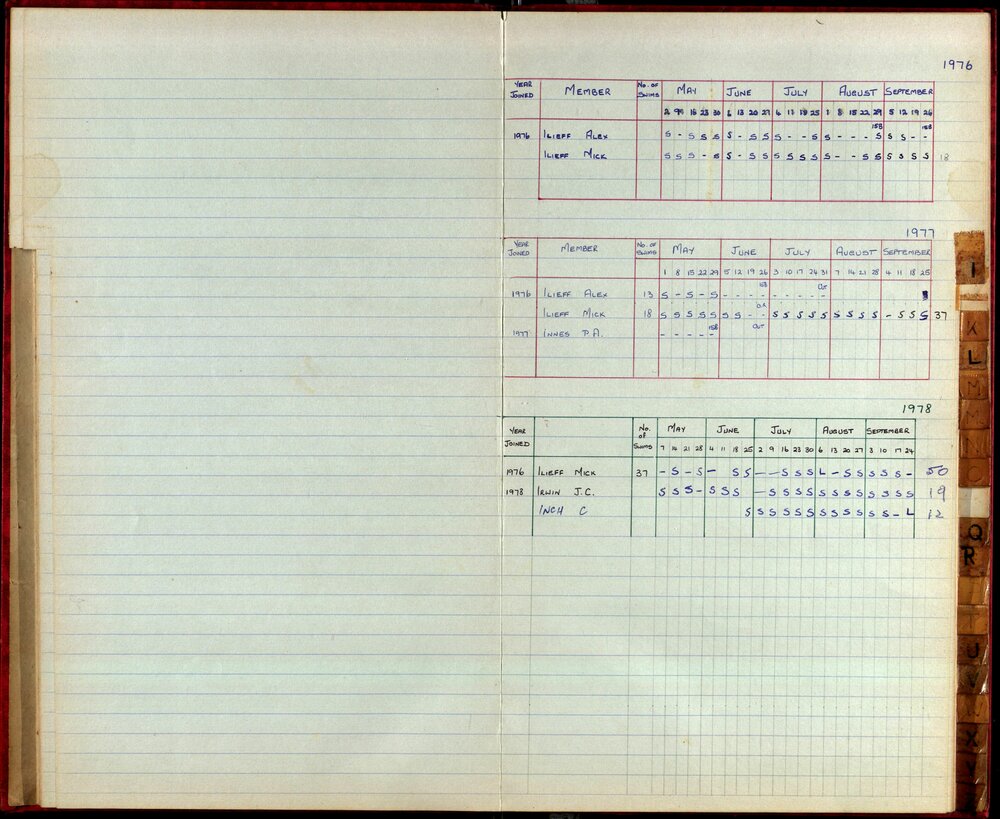 1976
YEAR JOINED MEMBER No. OF SWIMS MAY JUNE JULY AUGUST SEPTEMBER
2 9 16 23 30 6 13 20 27 4 11 18 25 1 8 15 22 29 5 12 19 26
158 158
1976 ILIEFF ALEX S - S S S S - S S S - - S S - - - S S S - -
ILIEFF MICK S S S - S S - S S S S S S S - - S S S S S S 18
1977
YEAR JOINED MEMBER No. OF SWIMS MAY JUNE JULY AUGUST SEPTEMBER
1 8 15 22 29 5 12 19 26 3 10 17 24 31 7 14 21 28 4 11 18 25
158 OUT
1976 ILIEFF ALEX 13 S - S - S - - - - - - - - -
ILIEFF MICK 18 S S S S S S S - - S S S S S S S S S - S S S 37
158 OUT
1977 INNES P.A. - - - - -
1978
YEAR JOINED No. of SWIMS MAY JUNE JULY AUGUST SEPTEMBER
7 14 21 28 4 11 18 25 2 9 16 23 30 6 13 20 27 3 10 17 24
1976 ILIEFF MICK 37 - S - S - S S - - S S S L - S S S S S - 50
1978 IRWIN J.C. S S S - S S S - S S S S S S S S S S S S 19
INCH C S S S S S S S S S S S S - L 12
I
K
L
M
M
N
O
Q
R
T
U
V
W
X
Y